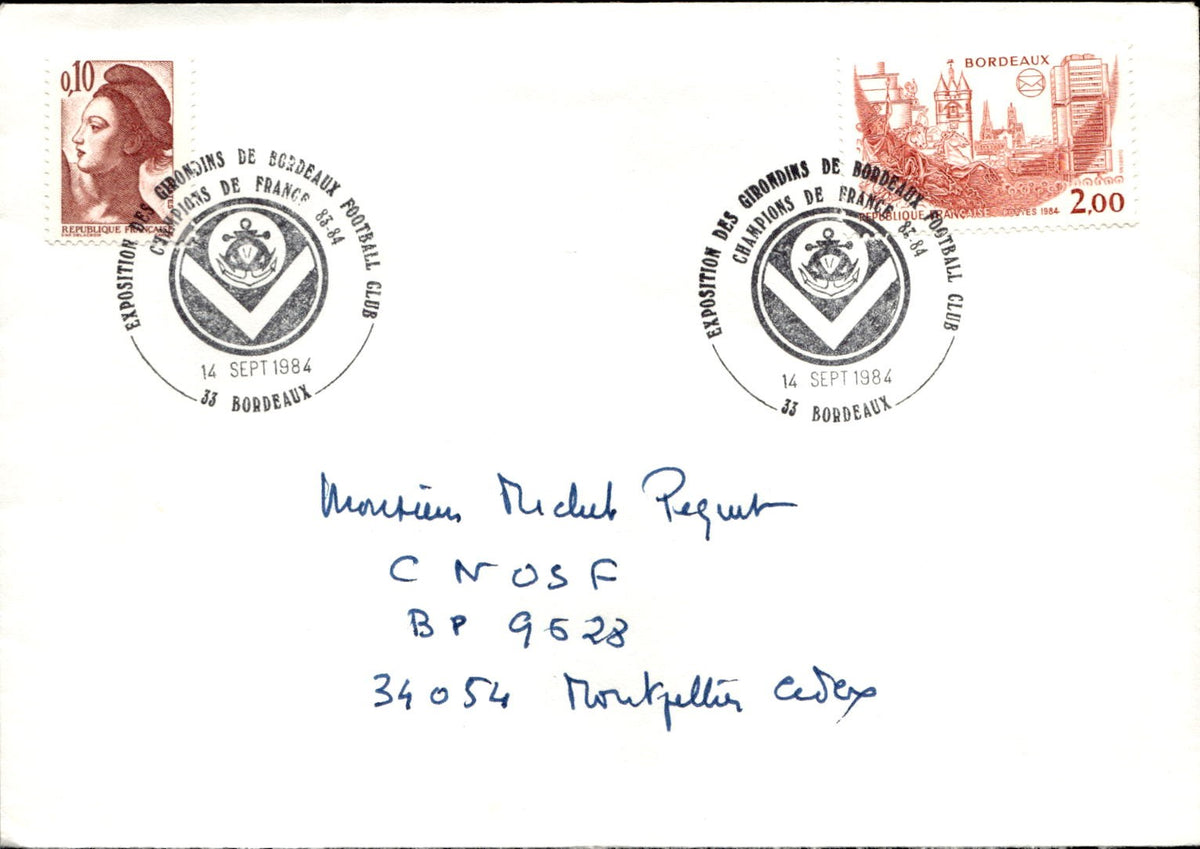 0,10
REPUBLIQUE FRANÇAISE
EXPOSITION DES GIRONDINS DE BORDEAUX FOOTBALL CLUB
CHAMPIONS DE FRANCE 83.84
V
14 SEPT 1984
33 BORDEAUX
BORDEAUX
REPUBLIQUE FRANÇAISE POSTES 1984 2,00
EXPOSITION DES GIRONDINS DE BORDEAUX FOOTBALL CLUB
CHAMPIONS DE FRANCE 83.84
V
14 SEPT 1984
33 BORDEAUX
Monsieur Michel Pequet
C N O S F
BP 9528
34054 Montpellier Cedex